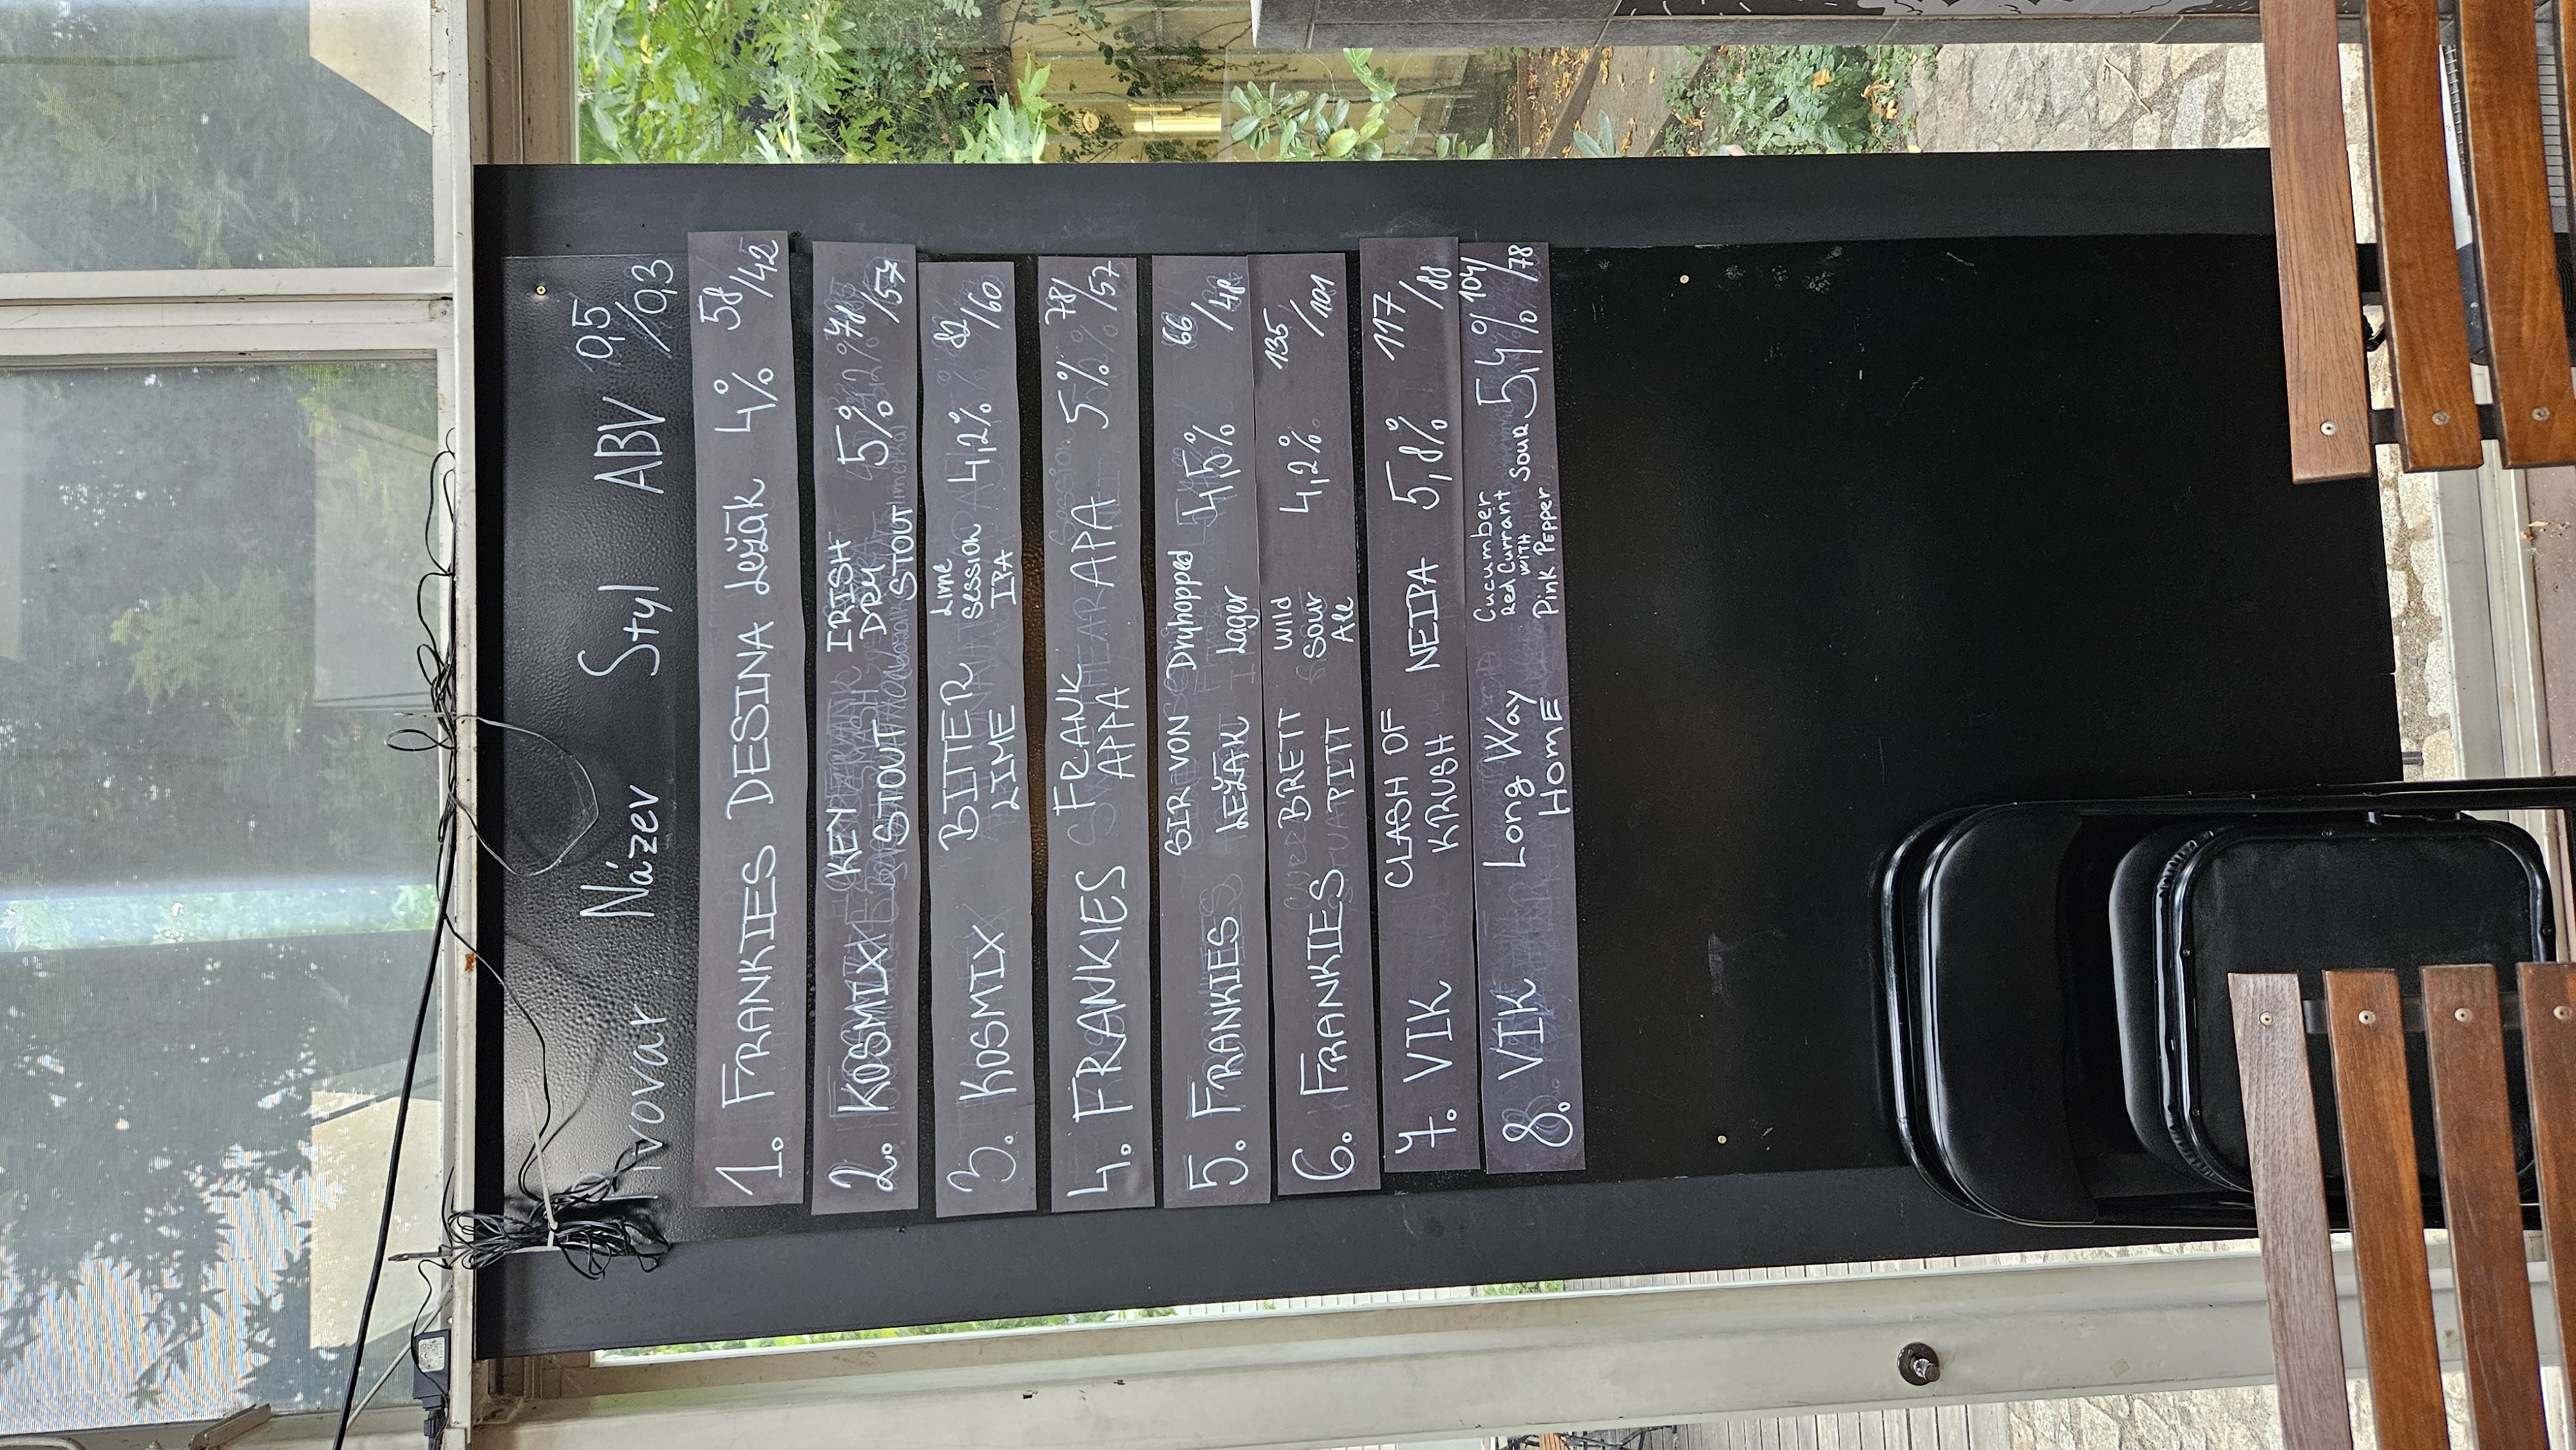 Pivovar Název Styl ABV 0,5/0,3
1. FRANKIES DESINA Ležák 4% 58/42
2. KOSMIX KEY STOUT IRISH DRY STOUT 5% 78/57
3. KOSMIX BITTER LIME Lime Session IPA 4,2% 82/60
4. FRANKIES FRANK APPA APA 5% 78/57
5. FRANKIES SIR VON LEŽÁK Dryhopped Lager 4,5% 66/48
6. FRANKIES BRETT PITT Wild Sour Ale 4,2% 135/101
7. VIK CLASH OF KRUSH NEIPA 5,8% 117/88
8. VIK Long Way Home Cucumber Red Currant with Pink Pepper Sour 5,4% 104/78